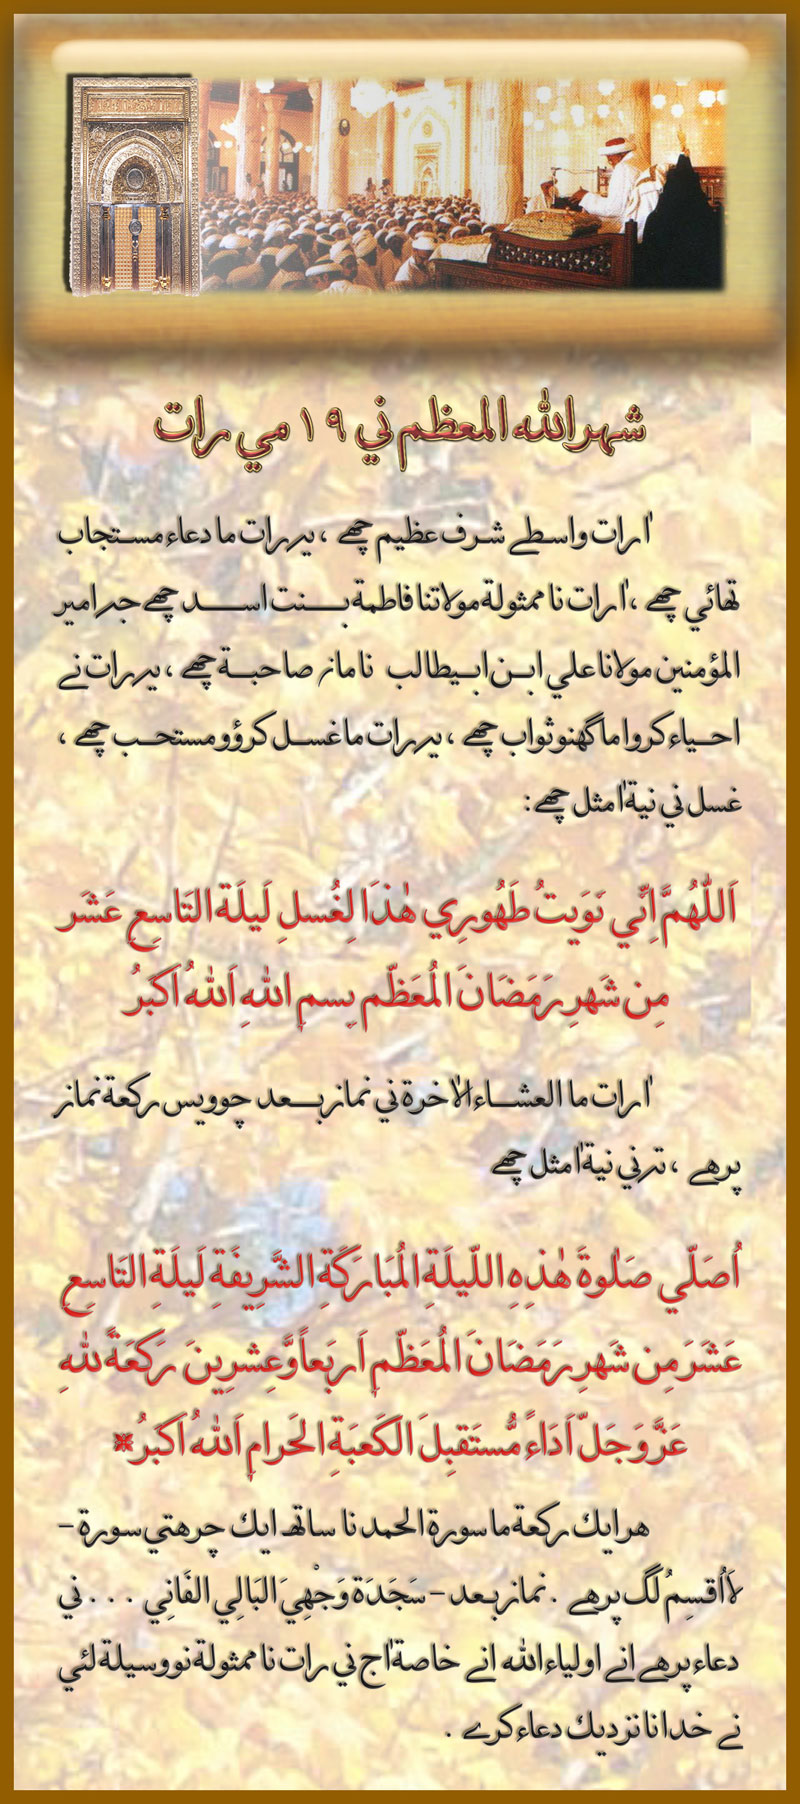 شهر الله المعظم ني ١٩ مي رات
اٰ رات واسطے شرف عظيم چھے ، يہ رات ما دعاء مستجاب
تھائي چھے ، اٰ رات نا ممثولة مولاتنا فاطمة بنت اسد چھے جہ امير
المؤمنين مولانا علي ابن ابيطالب نا ماں صاحبة چھے ، يہ رات نے
احياء كروا ما گھنو ثواب چھے ، يہ رات ما غسل كرؤو مستحب چھے ،
غسل ني نية اٰ مثل چھے :
اَللّٰهُمَّ اِنِّي نَوَيتُ طَهُورِي هٰذَا لِغُسلِ لَيلَة التَاسِعِ عَشَر
مِن شَهرِ رَمَضَانَ المُعَظّم بِسمِ اللهِ اَللهُ اَكبَرُ
اٰ رات ما العشاء الاٰخرة ني نماز بعد چوويس ركعة نماز
پرهے ، تہ ني نية اٰ مثل چھے
اُصَلّي صَلٰوةَ هٰذِهِ اللّيلَةِ المُبَارَكَةِ الشَّرِيفَةِ لَيلَةِ التَاسِعِ
عَشَرَ مِن شَهرِ رَمَضَانَ المُعَظّمِ اَربَعاً وَّعِشرِينَ رَكعَةً للهِ
عَزَّ وَجَلّ اَدَاءً مُّستَقبِلَ الكَعبَةِ الحَرامِ اَللهُ اَكبَرُ※
هر ايك ركعة ما سورة الحمد نا ساتھ ايك چرهتي سورة –
لاَ اُقسِمُ لگ پرهے . نماز بعد – سَجَدَة وَجْهِيَ البَالِي الفَانِي . . . ني
دعاء پرهے انے اولياء الله انے خاصة اٰج ني رات نا ممثولة نو وسيلة لئي
نے خدا نا نزديك دعاء كرے .